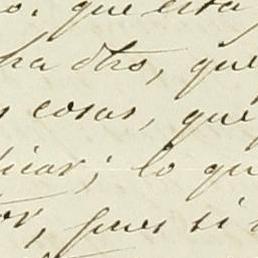 o. que esta
ha dho, que
s cosas, que
icar; lo qu
or, pues si a